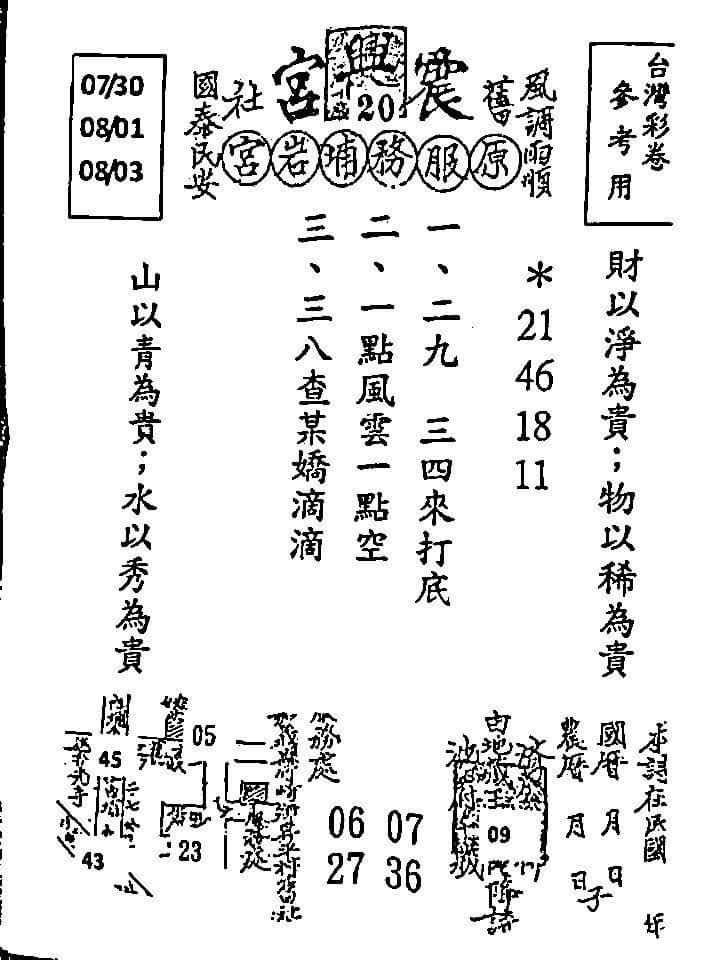 台灣彩卷
參考用
風調雨順
震興宮
20
舊社
國泰民安
原服務埔岩宮
07/30
08/01
08/03
財以淨為貴；物以稀為貴
＊21 46 18 11
一、二九　三四來打底
二、一點風雲一點空
三、三八查某嬌滴滴
山以青為貴；水以秀為貴
國曆 月 日
農曆 月 日
由地藏王
09
降詩
07
36
06
27
務處
05
23
45
43